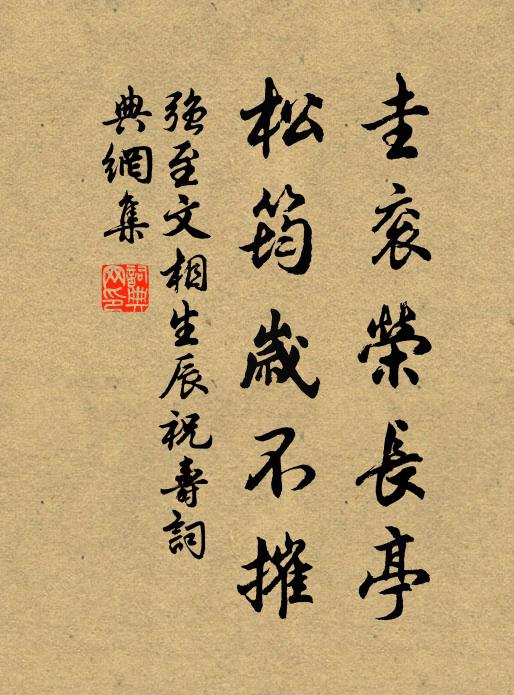 圭衮榮長亭
松筠歲不摧
強至文相生辰祝壽詞
典網集
詞典網印